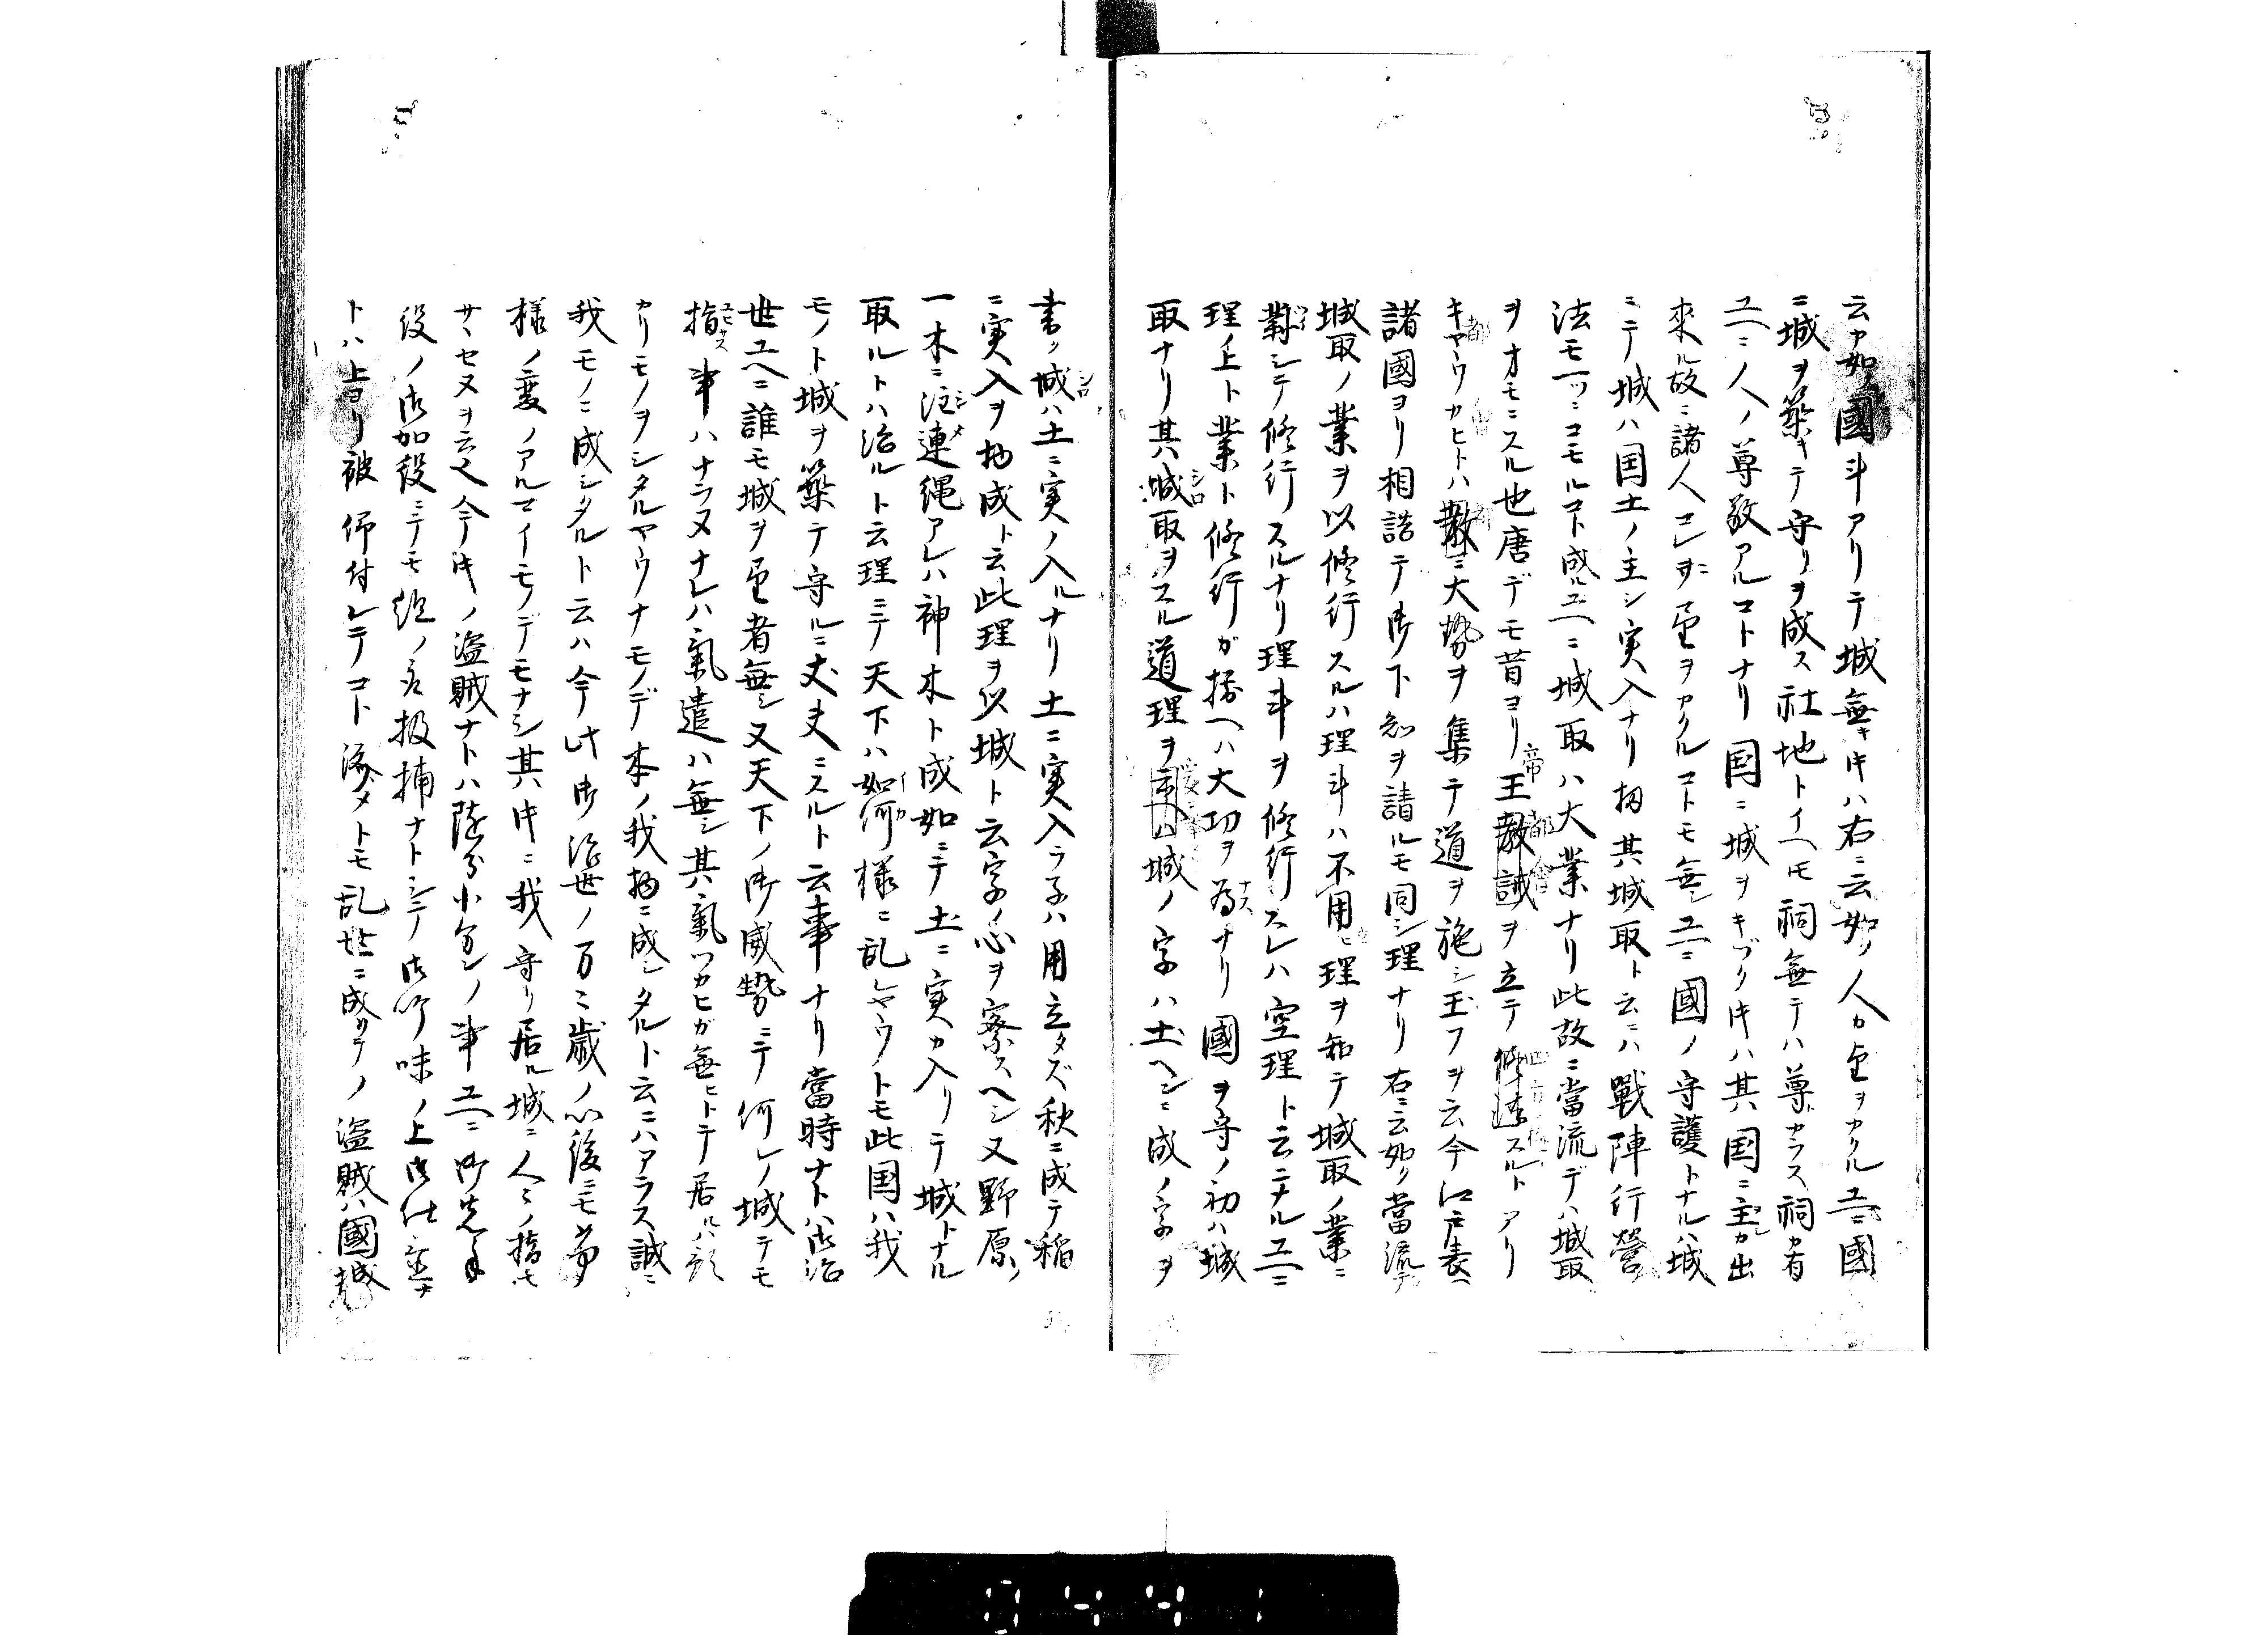 云カ如ク國斗アリテ城無キ時ハ右ニ云如ク人カ望ヲカクルユヘニ國
ニ城ヲ築キテ守リヲ成ス社地トイヘ𪜈祠無テハ尊カラス祠カ有
ユヘニ人ノ尊敬アルコトナリ国ニ城ヲキヅク時ハ其国ニ主カ出
來ル故ニ諸人コレヲ望ヲカクルコトモ無シユヘニ國ノ守護トナルハ城
ニテ城ハ国土ノ主シ実入ナリ扨其城取ト云ニハ戰陣行營
法モ一ツニコモルコト成ルユヘニ城取ハ大業ナリ此故ニ當流デハ城取
ヲオモニスル也唐デモ昔ヨリ帝王都ヲ立テスルトアリ
キヤウカヒトハ都ニ大勢ヲ集テ道ヲ施シ玉フヲ云今江戸表ヘ
諸國ヨリ相詰テ御下知ヲ請ルモ同シ理ナリ右ニ云如ク當流デ
城取ノ業ヲ以修行スルハ理斗ハ不用ヒ理ヲ知テ城取ノ業ニ
對シテ修行スルナリ理斗ヲ修行スレハ空理ト云ニナルユヘニ
理ノ上ト業ト修行ガ揃ヘハ大功ヲ為ナリ國ヲ守ノ初ハ城
取ナリ其城取ヲスル道理ヲハ城ノ字ハ土ヘンニ成ノ字ヲ
書ク城ハ土ニ実ノ入ルナリ土ニ実入ラ子ハ用立タズ秋ニ成テ稲
ニ実入ヲ物成ト云此理ヲ以城ト云字ノ心ヲ察スヘシ又野原ノ
一木ニ注連縄アレハ神木ト成如ニテ土ニ実カ入リテ城トナル
取ルトハ治ルト云理ニテ天下ハ如何様ニ乱レヤウノトモ此国ハ我
モノト城ヲ築テ守ルニ丈夫ニスルト云事ナリ當時ナトハ御治
世ユヘニ誰モ城ヲ望者無シ又天下ノ御威勢ニテ何レノ城テモ
指事ハナラヌナレハ氣遣ハ無シ其氣ツカヒガ無ヒトテ居ルハ
カリモノヲシタルヤウナモノデ本ノ我物ニ成シタルト云ニハアラス誠ニ
我モノニ成シタルト云ハ今此御治世ノ万々歳ノ後ニモ
様ノ変ノアルマイモノデモナシ其時ニ我守リ居ル城ニ人ノ指モ
サヽセヌヲ云又今時ノ盗賊ナトハ随分小分シノ事ユヘニ御先手
役ノ御加役ニテモ組ノ者捕ナトシテ御吟味ノ上御仕置ナ
トハ上ヨリ被仰付レテコト済メトモ乱世ニ成テノ盗賊ハ國城